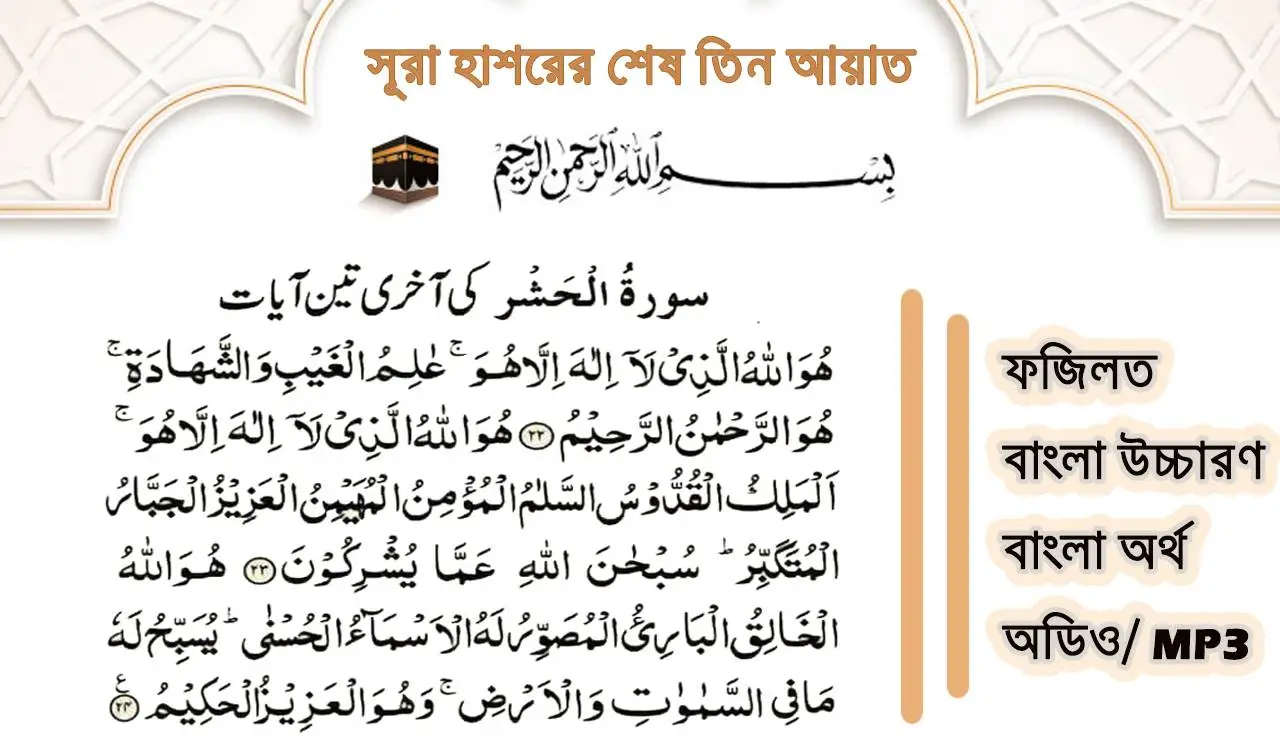 সূরা হাশরের শেষ তিন আয়াত
بِسْمِ اللهِ الرَّحْمٰنِ الرَّحِيْمِ
سورةُ الْحَشْر کی آخری تین آیات
هُوَ اللهُ الَّذِىْ لَآ اِلٰهَ اِلَّا هُوَ ۚ عٰلِمُ الْغَيْبِ وَالشَّهَادَةِ ۚ
هُوَ الرَّحْمٰنُ الرَّحِيْمُ ۝۲۲ هُوَ اللهُ الَّذِىْ لَآ اِلٰهَ اِلَّا هُوَ ۚ
اَلْمَلِكُ الْقُدُّوْسُ السَّلٰمُ الْمُؤْمِنُ الْمُهَيْمِنُ الْعَزِيْزُ الْجَبَّارُ
الْمُتَكَبِّرُ ؕ سُبْحٰنَ اللهِ عَمَّا يُشْرِكُوْنَ ۝۲۳ هُوَ اللهُ
الْخَالِقُ الْبَارِئُ الْمُصَوِّرُ لَهُ الْاَسْمَآءُ الْحُسْنٰى ؕ يُسَبِّحُ لَهٗ
مَا فِى السَّمٰوٰتِ وَالْاَرْضِ ۚ وَهُوَ الْعَزِيْزُ الْحَكِيْمُ ۝۲۴ ع
ফজিলত
বাংলা উচ্চারণ
বাংলা অর্থ
অডিও/ MP3